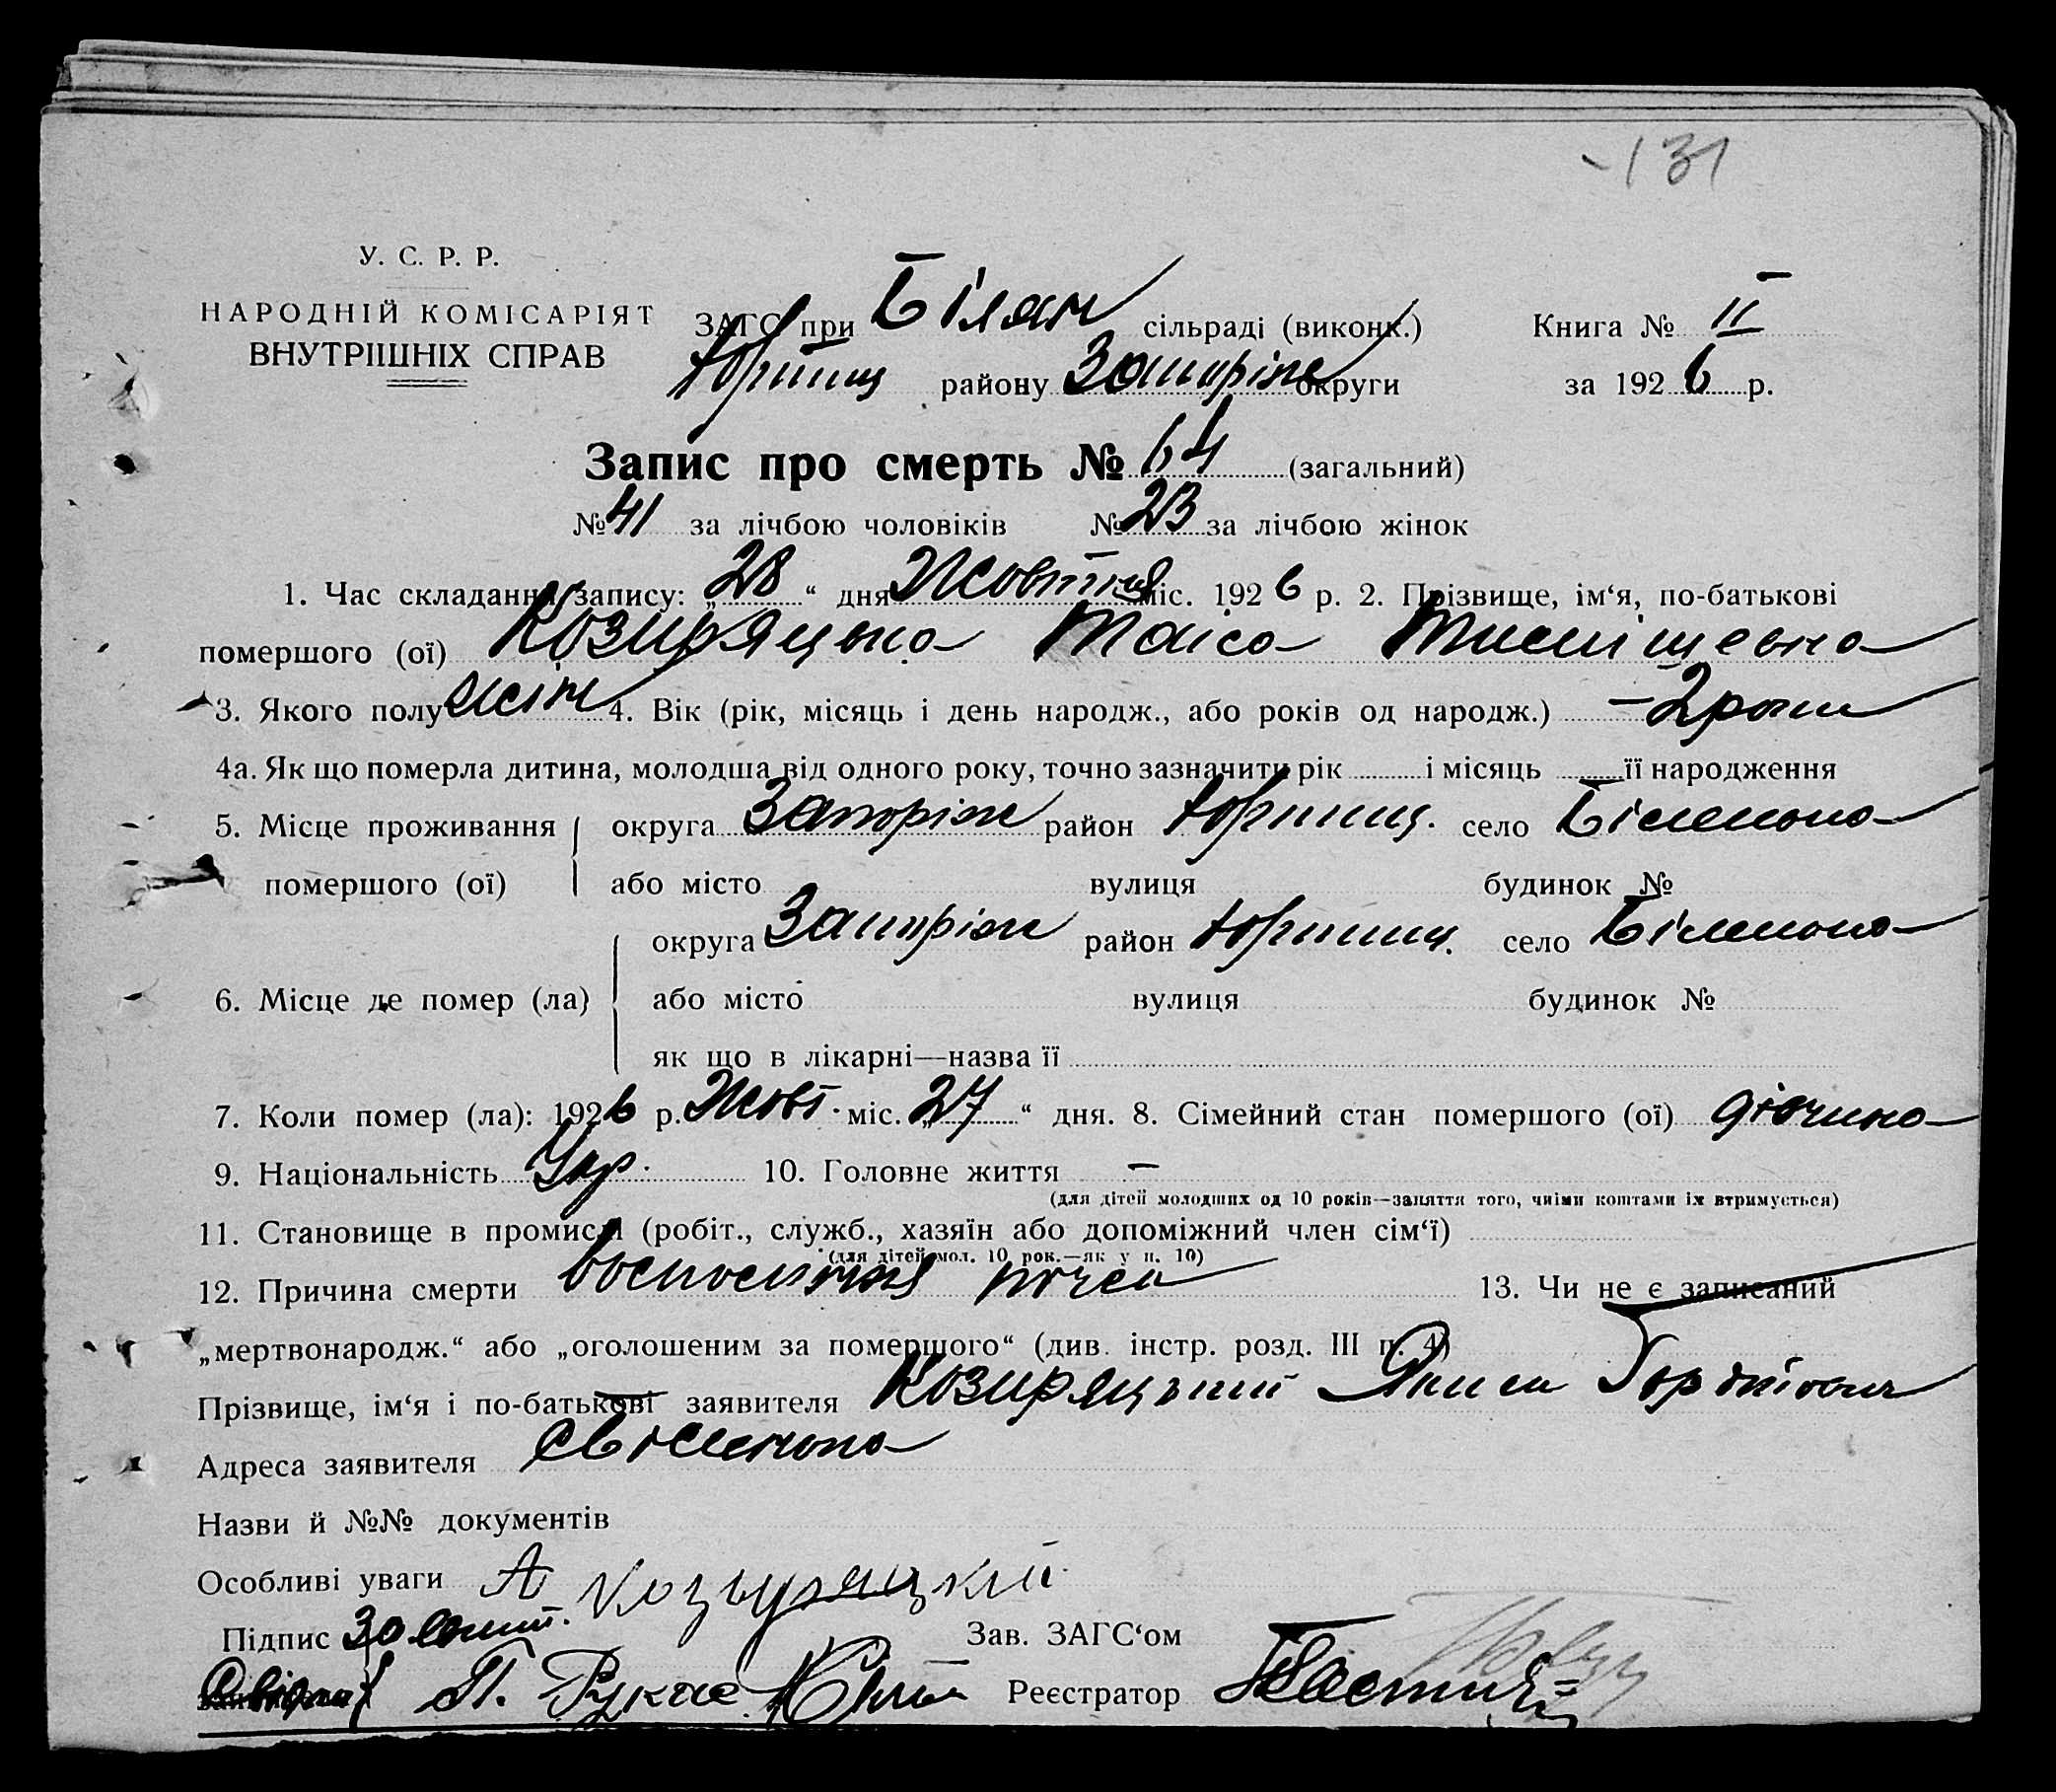 -131
У. С. Р. Р.
НАРОДНІЙ КОМІСАРІЯТ
ВНУТРІШНІХ СПРАВ
ЗАГС при Білян сільраді (виконк.)
Книга № II
Хортиц району Запоріж округи
за 1926 р.
Запис про смерть № 64 (загальний)
№ 41 за лічбою чоловіків № 23 за лічбою жінок
1. Час складання запису: „28“ дня Жовтня міс. 1926 р. 2. Прізвище, ім‘я, по-батькові
помершого (ої) Козиряцька Таіса
3. Якого полу жін 4. Вік (рік, місяць і день народж., або років од народж.) – 2 роки
4а. Як що померла дитина, молодша від одного року, точно зазначити рік і місяць її народження
5. Місце проживання округа Запоріж район Хортиц. село Біленька
помершого (ої) або місто вулиця будинок №
округа Запоріж район Хортиц. село Біленька
6. Місце де помер (ла) або місто вулиця будинок №
як що в лікарні—назва її
7. Коли помер (ла): 1926 р. Жовт. міс. „27“ дня. 8. Сімейний стан помершого (ої) дівчина
9. Національність Укр. 10. Головне життя –
(для дітей молодших од 10 років—заняття того, чиїми коштами їх втримується)
11. Становище в промислі (робіт., служб., хазяїн або допоміжний член сім‘ї)
(для дітей мол. 10 рок.—як у п. 10)
12. Причина смерти 13. Чи не є записаний
„мертвонародж.“ або „оголошеним за помершого“ (див. інстр. розд. III п. 4)
Прізвище, ім‘я і по-батькові заявителя Козиряцький
Адреса заявителя с Біленька
Назви й №№ документів
Особливі уваги А Козыряцкий
Підпис Зав. ЗАГС‘ом
Свідки П. Рукас Реєстратор